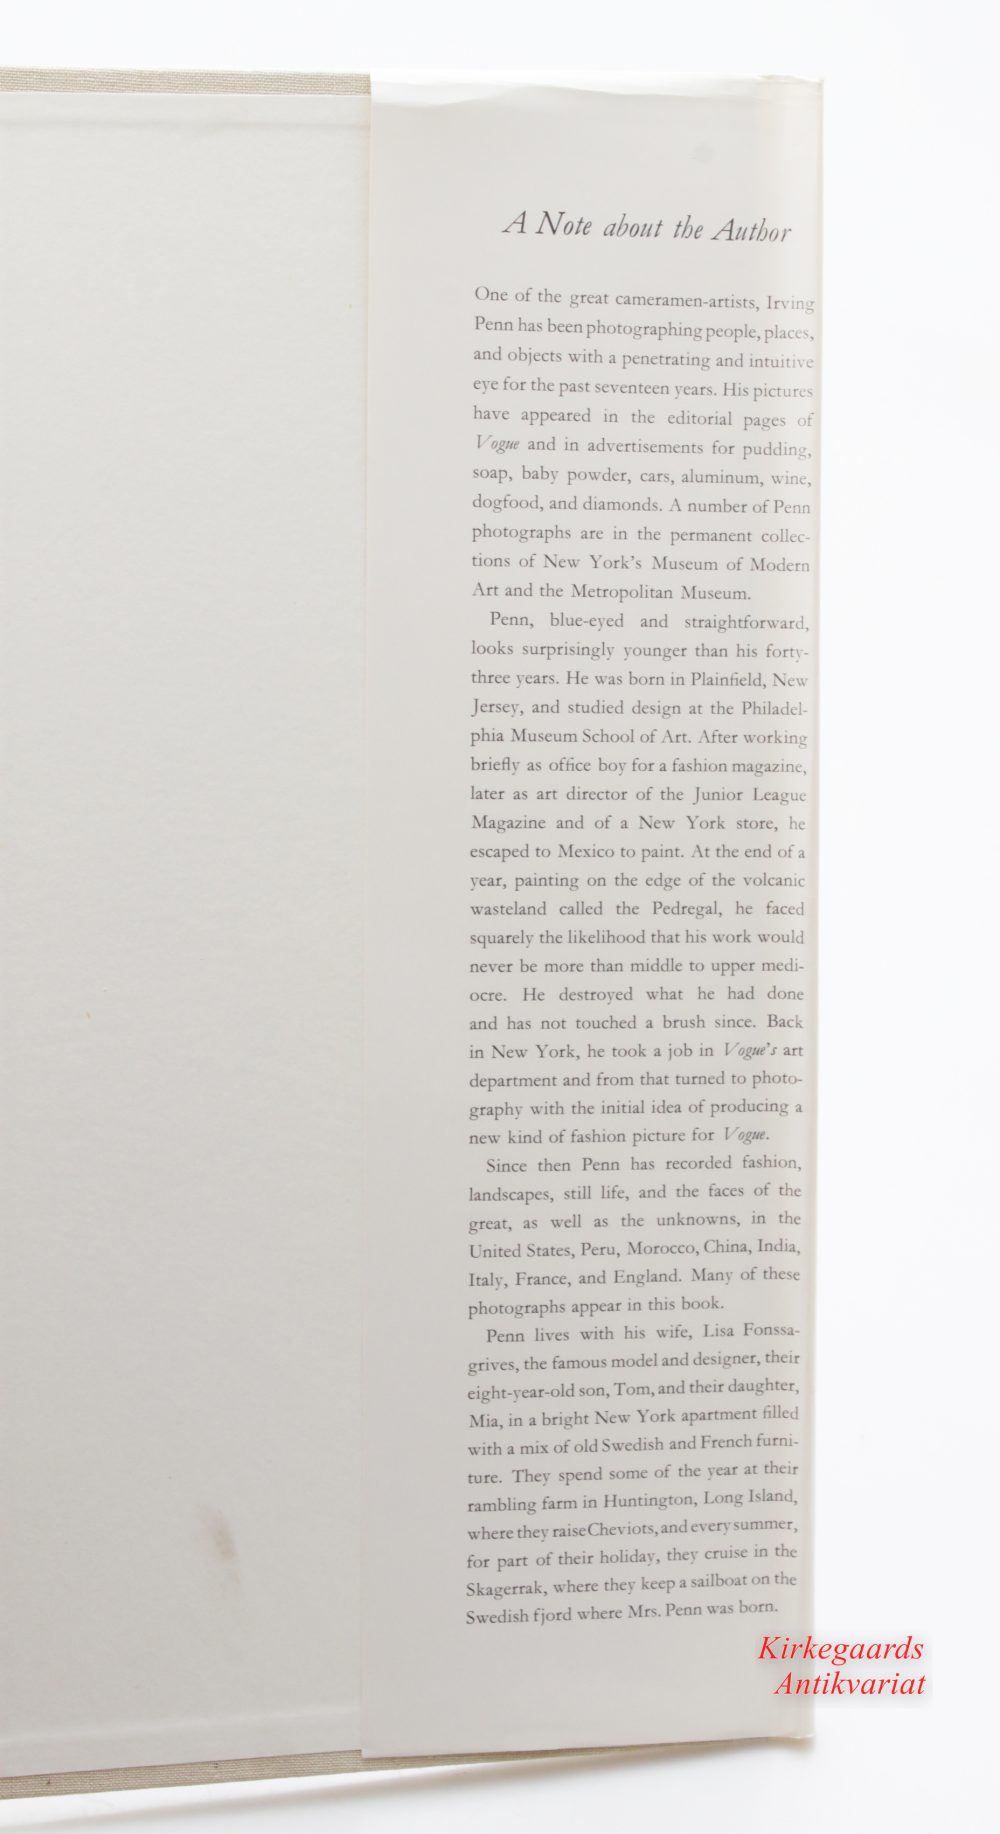 A Note about the Author
One of the great cameramen-artists, Irving
Penn has been photographing people, places,
and objects with a penetrating and intuitive
eye for the past seventeen years. His pictures
have appeared in the editorial pages of
Vogue and in advertisements for pudding,
soap, baby powder, cars, aluminum, wine,
dogfood, and diamonds. A number of Penn
photographs are in the permanent collec-
tions of New York's Museum of Modern
Art and the Metropolitan Museum.
Penn, blue-eyed and straightforward,
looks surprisingly younger than his forty-
three years. He was born in Plainfield, New
Jersey, and studied design at the Philadel-
phia Museum School of Art. After working
briefly as office boy for a fashion magazine,
later as art director of the Junior League
Magazine and of a New York store, he
escaped to Mexico to paint. At the end of a
year, painting on the edge of the volcanic
wasteland called the Pedregal, he faced
squarely the likelihood that his work would
never be more than middle to upper medi-
ocre. He destroyed what he had done
and has not touched a brush since. Back
in New York, he took a job in Vogue's art
department and from that turned to photo-
graphy with the initial idea of producing a
new kind of fashion picture for Vogue.
Since then Penn has recorded fashion,
landscapes, still life, and the faces of the
great, as well as the unknowns, in the
United States, Peru, Morocco, China, India,
Italy, France, and England. Many of these
photographs appear in this book.
Penn lives with his wife, Lisa Fonssa-
grives, the famous model and designer, their
eight-year-old son, Tom, and their daughter,
Mia, in a bright New York apartment filled
with a mix of old Swedish and French furni-
ture. They spend some of the year at their
rambling farm in Huntington, Long Island,
where they raise Cheviots, and every summer,
for part of their holiday, they cruise in the
Skagerrak, where they keep a sailboat on the
Swedish fjord where Mrs. Penn was born.
Kirkegaards
Antikvariat